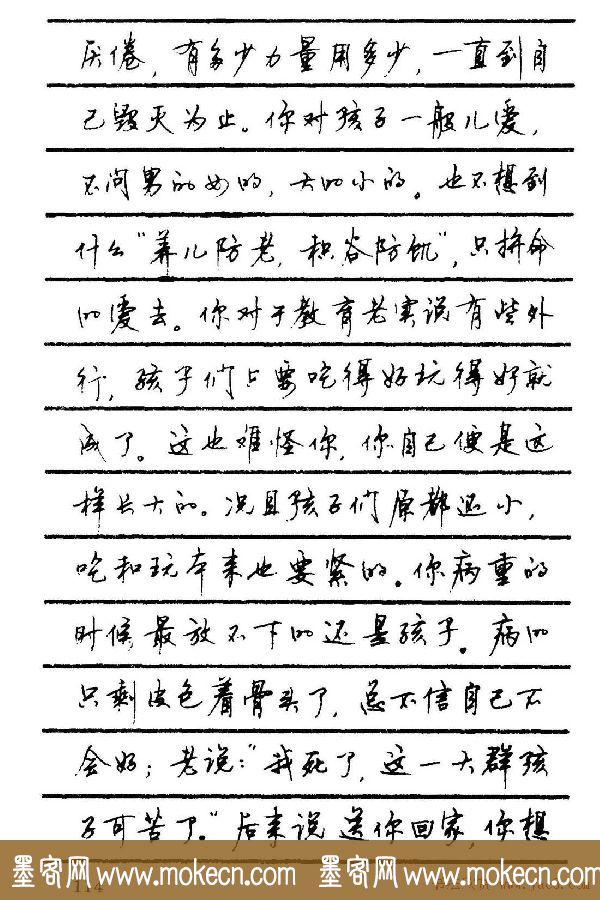 厌倦，有多少力量用多少，一直到自
己毁灭为止。你对孩子一般儿爱，
不问男的女的，大的小的。也不想到
什么"养儿防老，积谷防饥"，只拼命
的爱去。你对于教育老实说有些外
行，孩子们只要吃得好玩得好就
成了。这也难怪你，你自己便是这
样长大的。况且孩子们原都还小，
吃和玩本来也要紧的。你病重的
时候最放不下的还是孩子。病的
只剩皮包着骨头了，总不信自己不
会好；老说："我死了，这一大群孩
子可苦了。"后来说送你回家，你想
墨客网 www.mokecn.com 墨客网 www.mokecn.com
114